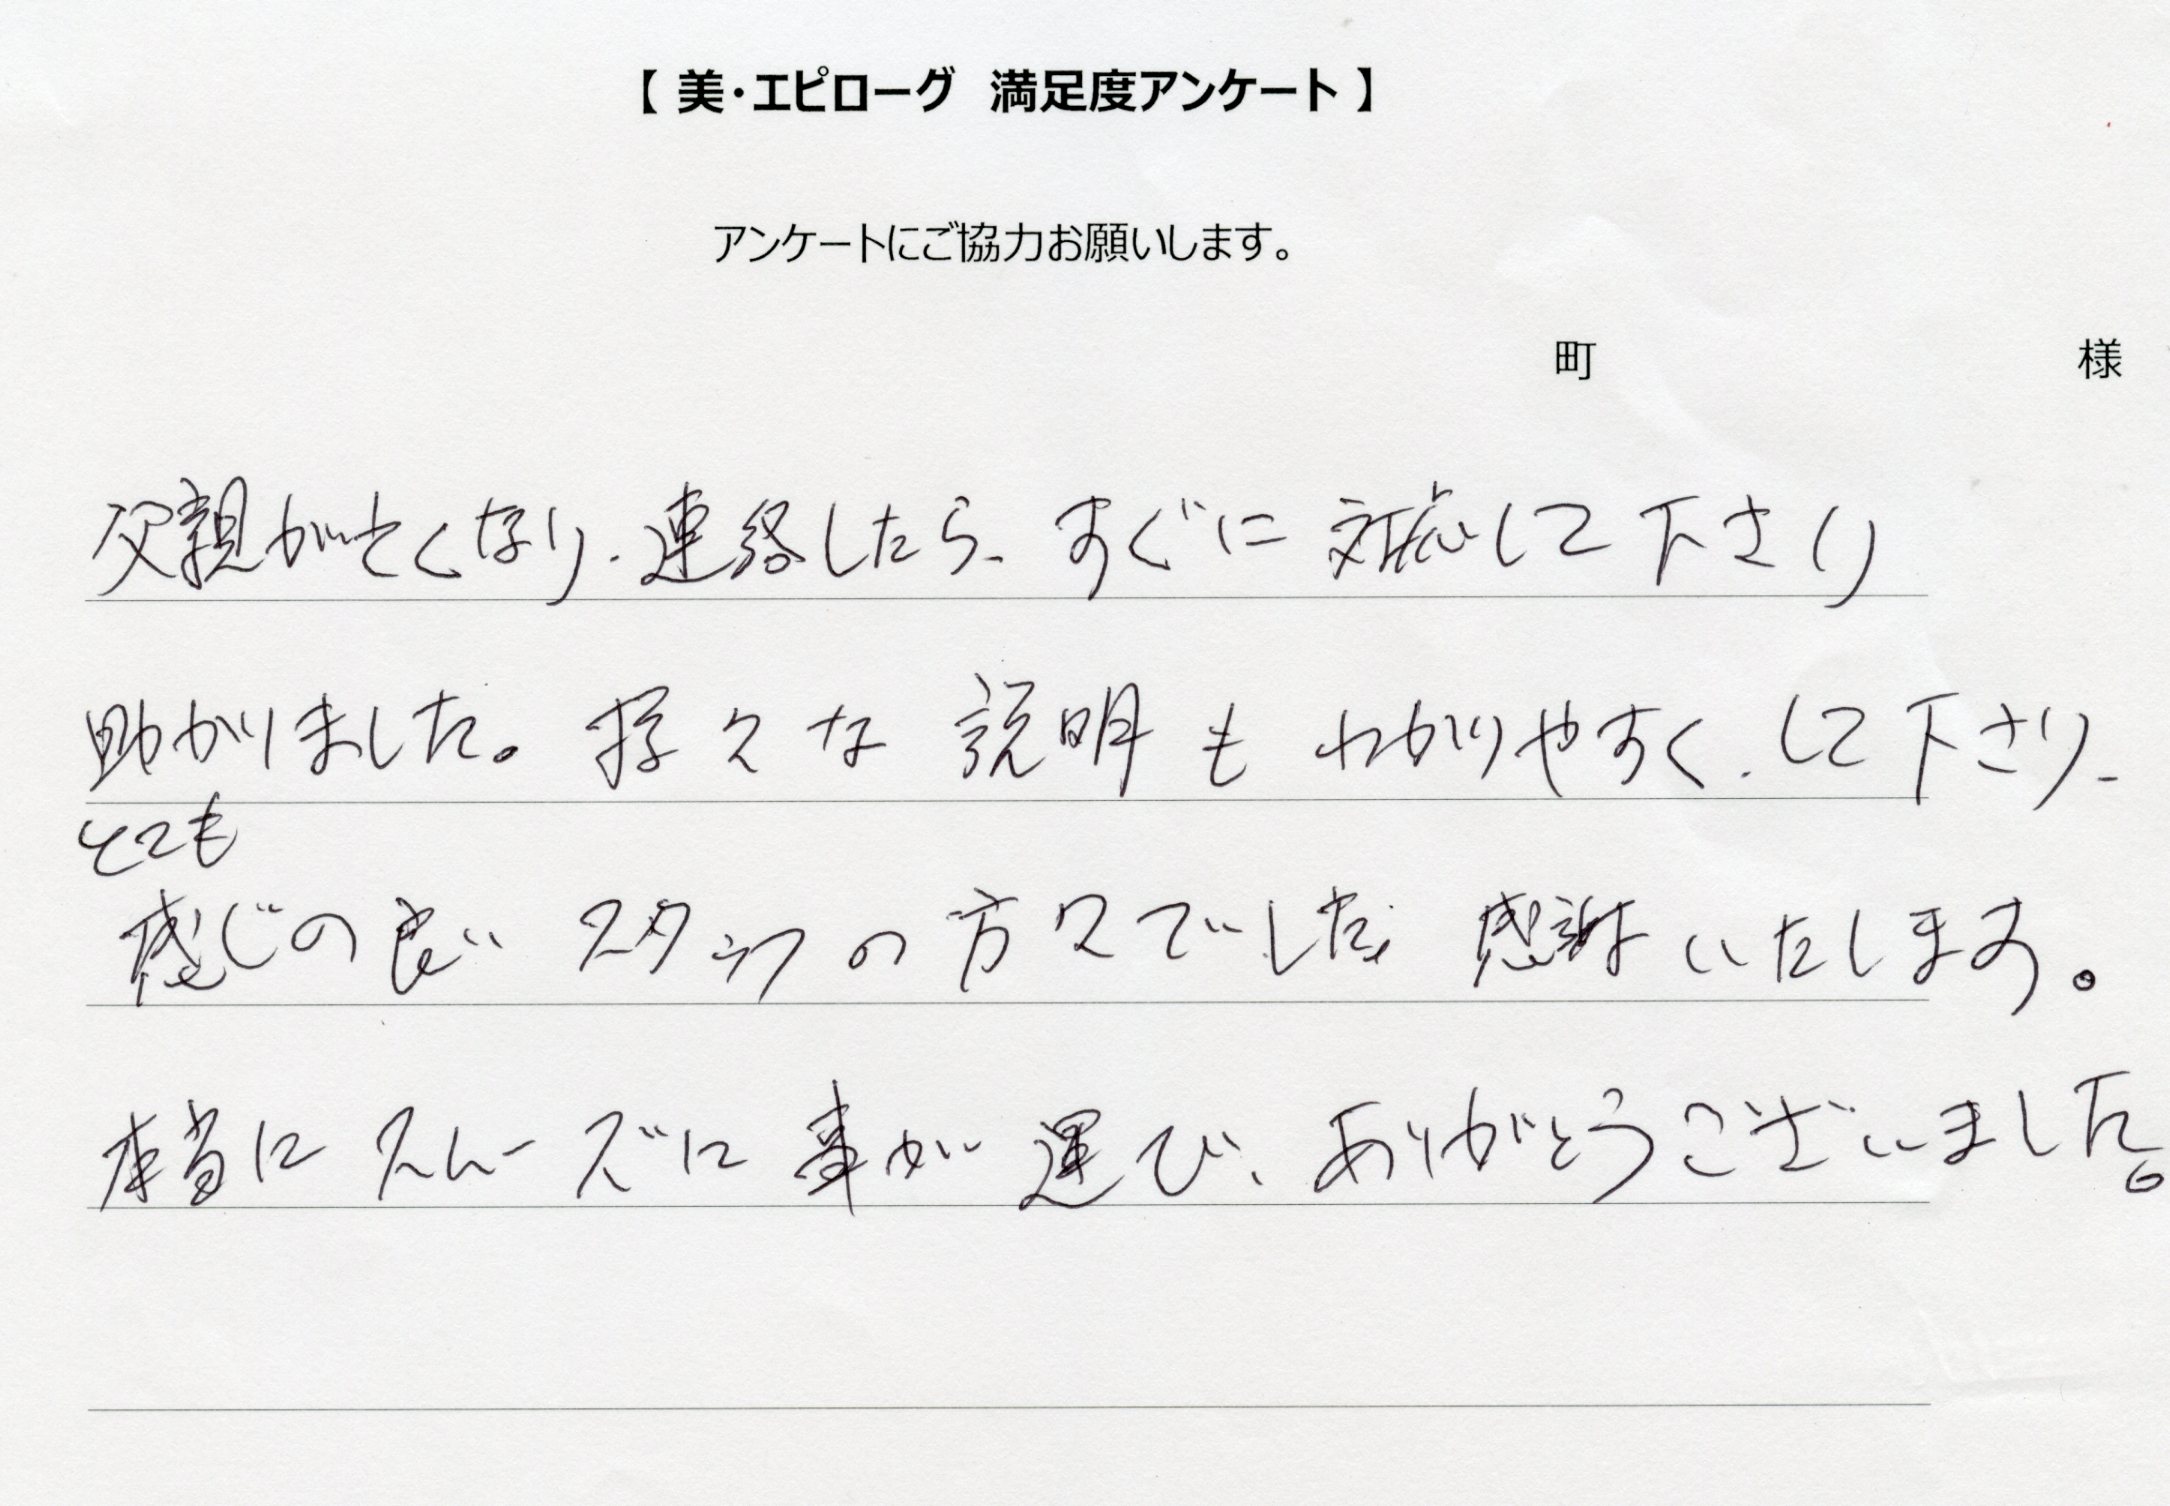 【 美・エピローグ　満足度アンケート 】
アンケートにご協力お願いします。
町　様
父親が亡くなり、連絡したら、すぐに対応して下さり
助かりました。様々な説明もわかりやすく、して下さり、
とても
感じの良いスタッフの方々でした。感謝いたします。
本当にスムーズに事が運び、ありがとうございました。